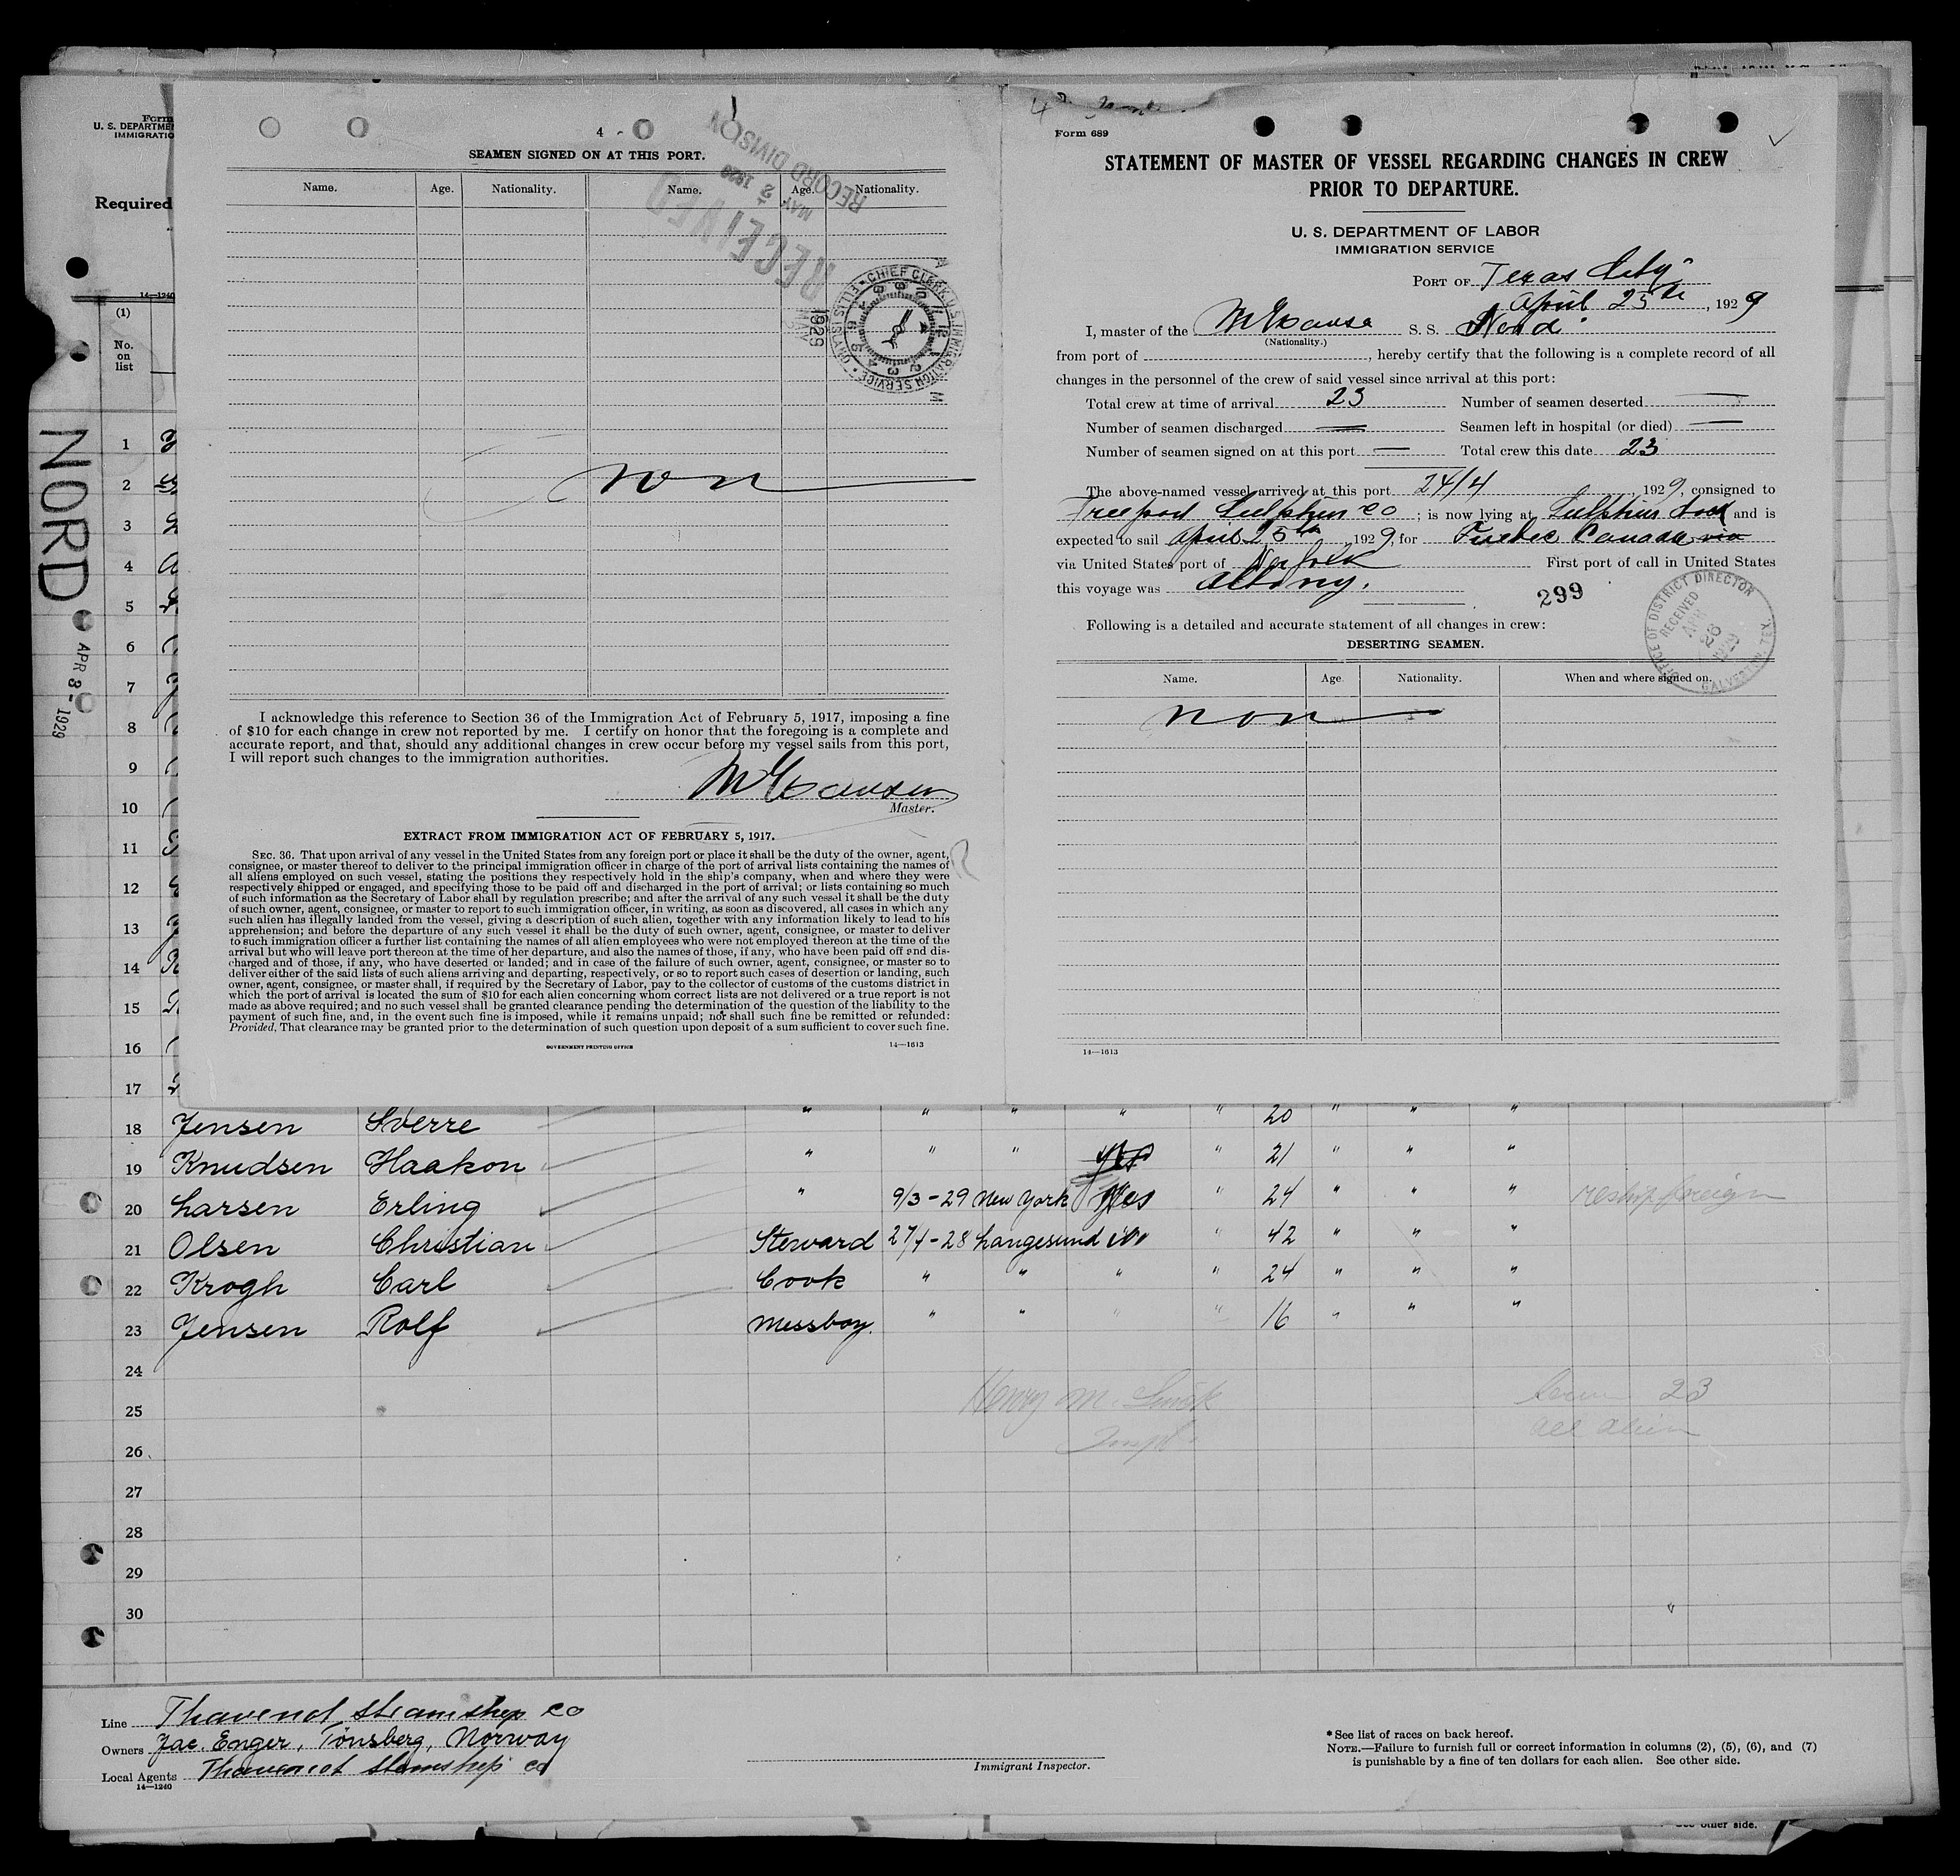 Form
U. S. DEPARTME
IMMIGRATIO
Required
14—1240
(1)
No.
on
list
NORD
APR 8 - 1929
4
SEAMEN SIGNED ON AT THIS PORT.
Name. Age. Nationality. Name. Age. Nationality.
RECEIVED
MAY 2 1929
RECORD DIVISION
CHIEF CLERK U.S. IMMIGRATION SERVICE ELLIS ISLAND
1929
non
I acknowledge this reference to Section 36 of the Immigration Act of February 5, 1917, imposing a fine
of $10 for each change in crew not reported by me. I certify on honor that the foregoing is a complete and
accurate report, and that, should any additional changes in crew occur before my vessel sails from this port,
I will report such changes to the immigration authorities.
Master.
EXTRACT FROM IMMIGRATION ACT OF FEBRUARY 5, 1917.
SEC. 36. That upon arrival of any vessel in the United States from any foreign port or place it shall be the duty of the owner, agent,
consignee, or master thereof to deliver to the principal immigration officer in charge of the port of arrival lists containing the names of
all aliens employed on such vessel, stating the positions they respectively hold in the ship's company, when and where they were
respectively shipped or engaged, and specifying those to be paid off and discharged in the port of arrival; or lists containing so much
of such information as the Secretary of Labor shall by regulation prescribe; and after the arrival of any such vessel it shall be the duty
of such owner, agent, consignee, or master to report to such immigration officer, in writing, as soon as discovered, all cases in which any
such alien has illegally landed from the vessel, giving a description of such alien, together with any information likely to lead to his
apprehension; and before the departure of any such vessel it shall be the duty of such owner, agent, consignee, or master to deliver
to such immigration officer a further list containing the names of all alien employees who were not employed thereon at the time of the
arrival but who will leave port thereon at the time of her departure, and also the names of those, if any, who have been paid off and dis-
charged and of those, if any, who have deserted or landed; and in case of the failure of such owner, agent, consignee, or master so to
deliver either of the said lists of such aliens arriving and departing, respectively, or so to report such cases of desertion or landing, such
owner, agent, consignee, or master shall, if required by the Secretary of Labor, pay to the collector of customs of the customs district in
which the port of arrival is located the sum of $10 for each alien concerning whom correct lists are not delivered or a true report is not
made as above required; and no such vessel shall be granted clearance pending the determination of the question of the liability to the
payment of such fine, and, in the event such fine is imposed, while it remains unpaid; nor shall such fine be remitted or refunded:
Provided, That clearance may be granted prior to the determination of such question upon deposit of a sum sufficient to cover such fine.
GOVERNMENT PRINTING OFFICE 14—1613
Form 689
STATEMENT OF MASTER OF VESSEL REGARDING CHANGES IN CREW
PRIOR TO DEPARTURE.
U. S. DEPARTMENT OF LABOR
IMMIGRATION SERVICE
PORT OF Texas City
April 25th, 1929
I, master of the S. S. Nord
(Nationality.)
from port of , hereby certify that the following is a complete record of all
changes in the personnel of the crew of said vessel since arrival at this port:
Total crew at time of arrival 23 Number of seamen deserted —
Number of seamen discharged — Seamen left in hospital (or died) —
Number of seamen signed on at this port — Total crew this date 23
The above-named vessel arrived at this port 24/4, 1929, consigned to
Freeport Sulphur Co; is now lying at Sulphur dock and is
expected to sail April 25th, 1929, for Quebec Canada via
via United States port of Norfolk First port of call in United States
this voyage was Albany.
299
OFFICE OF DISTRICT DIRECTOR
RECEIVED
APR 26 1929
GALVESTON, TEX.
Following is a detailed and accurate statement of all changes in crew:
DESERTING SEAMEN.
Name. Age. Nationality. When and where signed on.
non
14—1613
1
2
3
4
5
6
7
8
9
10
11
12
13
14
15
16
17
18 Jensen Sverre " " " " " 20 " " "
19 Knudsen Haakon " " " yes " 21 " " "
20 Larsen Erling " 9/3-29 New York Yes " 24 " " " reship foreign
21 Olsen Christian Steward 27/4-28 Langesund " 42 " " "
22 Krogh Carl Cook " " " " 24 " " "
23 Jensen Rolf Messboy. " " " " 16 " " "
24
25
26
27
28
29
30
Henry M. Smith
Inspt.
23
all alien
Line Thavenot Steamship Co
Owners Jac. Enger, Tønsberg, Norway
Local Agents Thavenot Steamship Co
14—1240
Immigrant Inspector.
* See list of races on back hereof.
NOTE.—Failure to furnish full or correct information in columns (2), (5), (6), and (7)
is punishable by a fine of ten dollars for each alien. See other side.
See other side.